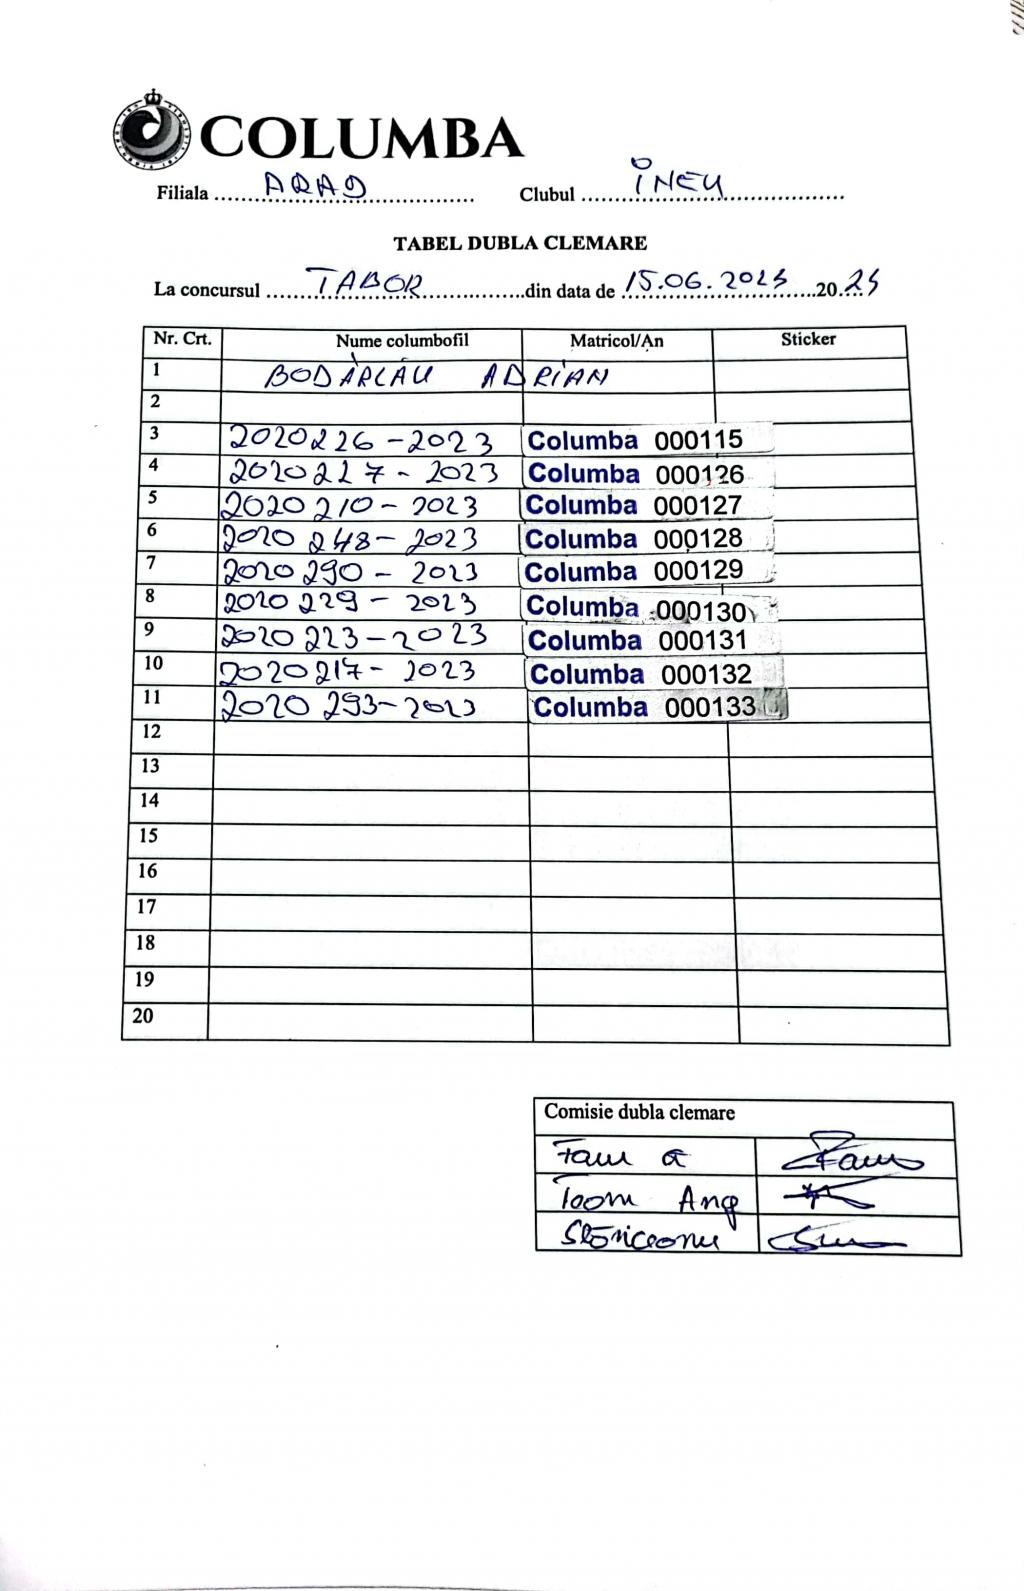 COLUMBA
Filiala ARAD Clubul INEU
TABEL DUBLA CLEMARE
La concursul TABOR din data de 15.06.2025 20 25
Nr. Crt. Nume columbofil Matricol/An Sticker
1 BODÂRLĂU ADRIAN
2
3 2020226-2023 Columba 000115
4 2020227-2023 Columba 000126
5 2020210-2023 Columba 000127
6 2020248-2023 Columba 000128
7 2020290-2023 Columba 000129
8 2020229-2023 Columba 000130
9 2020223-2023 Columba 000131
10 2020217-2023 Columba 000132
11 2020293-2023 Columba 000133
12
13
14
15
16
17
18
19
20
Comisie dubla clemare
Toom Ang